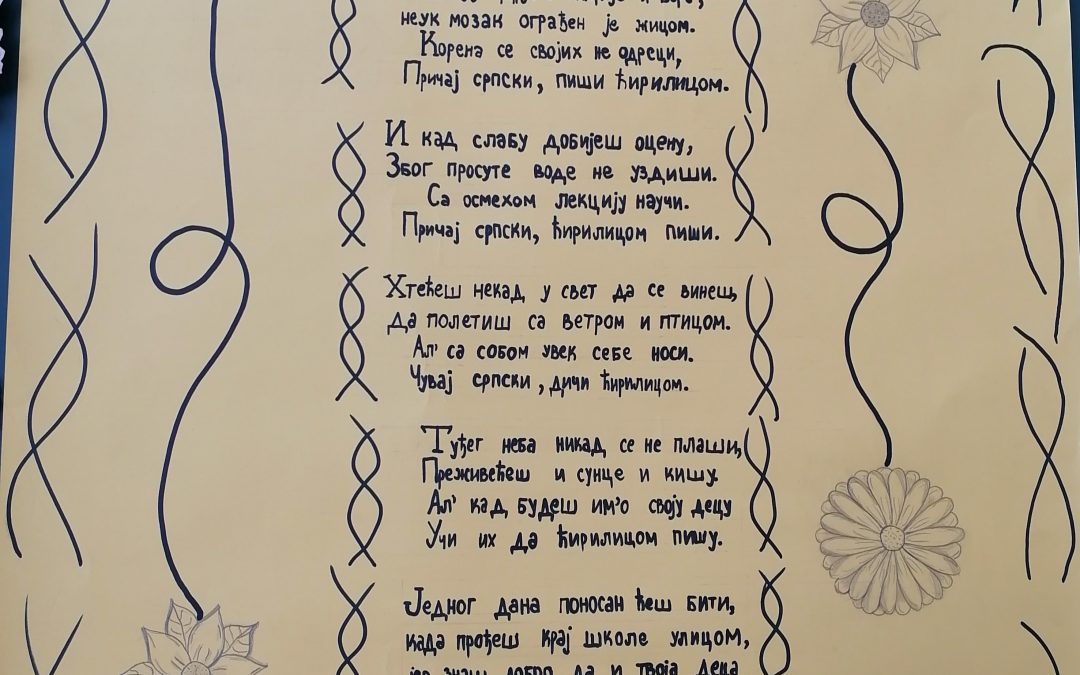 неук мозак ограђен је жицом.
Корена се својих не одреци,
Причај српски, пиши ћирилицом.
И кад слабу добијеш оцену,
Због просуте воде не уздиши.
Са осмехом лекцију научи.
Причај српски, ћирилицом пиши.
Хтећеш некад у свет да се винеш,
Да полетиш са ветром и птицом.
Ал' са собом увек себе носи.
Чувај српски, дичи ћирилицом.
Туђег неба никад се не плаши,
Преживећеш и сунце и кишу.
Ал' кад будеш им'о своју децу
Учи их да ћирилицом пишу.
Једног дана поносан ћеш бити,
када прођеш крај школе улицом,
јер знаш добро да и твоја деца